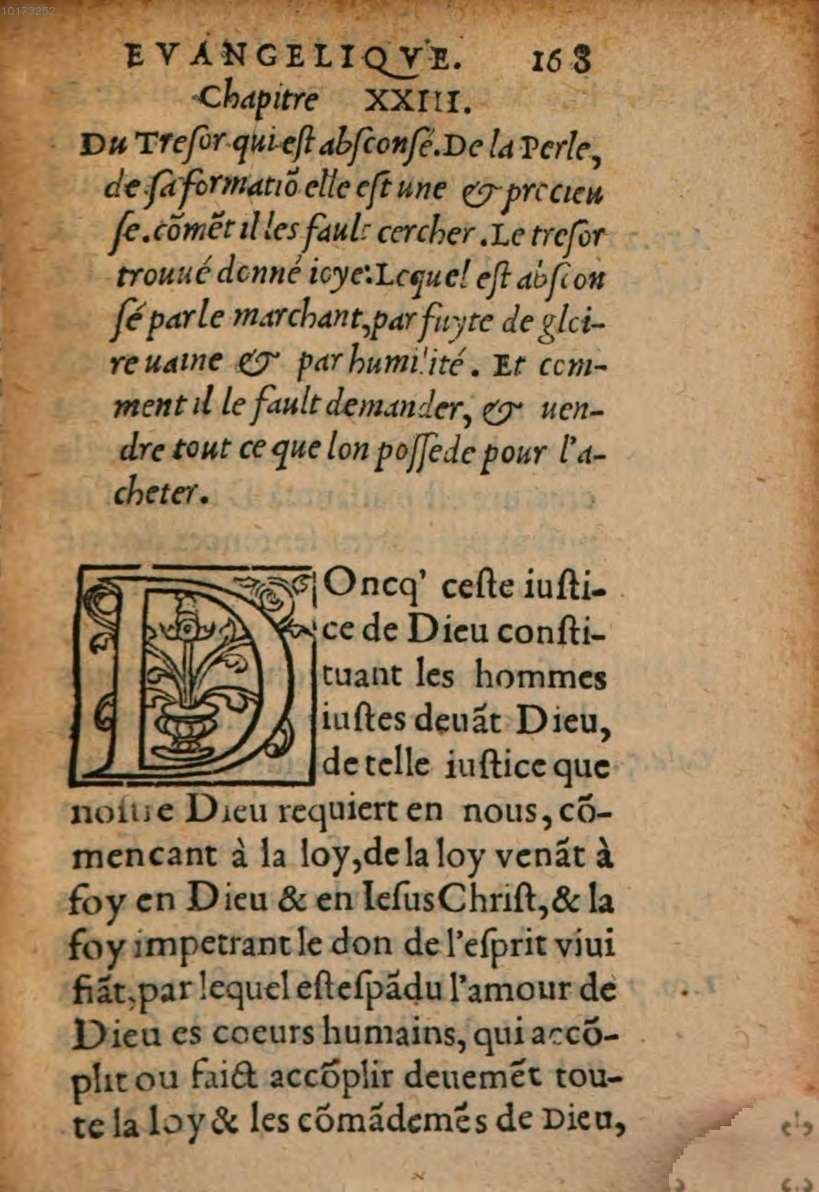 10173252
EVANGELIQVE. 168
Chapitre XXIII.
Du Treſor qui eſt abſconſé. De la Perle,
de ſa formatiõ elle eſt une & precieu
ſe. cõmẽt il les fault cercher. Le treſor
trouué donné ioye. Lequel eſt abſcon
ſé par le marchant, par fuyte de gloi-
re uaine & par humilité. Et com-
ment il le fault demander, & uen-
dre tout ce que lon poſſede pour l'a-
cheter.
DOncq' ceſte iuſti-
ce de Dieu conſti-
tuant les hommes
iuſtes deuãt Dieu,
de telle iuſtice que
noſtre Dieu requiert en nous, cõ-
mencant à la loy, de la loy venãt à
foy en Dieu & en Ieſus Chriſt, & la
foy impetrant le don de l'eſprit viui
fiãt, par lequel eſt eſpãdu l'amour de
Dieu es coeurs humains, qui accõ-
plit ou faict accõplir deuemẽt tou-
te la loy & les cõmãdemẽs de Dieu,